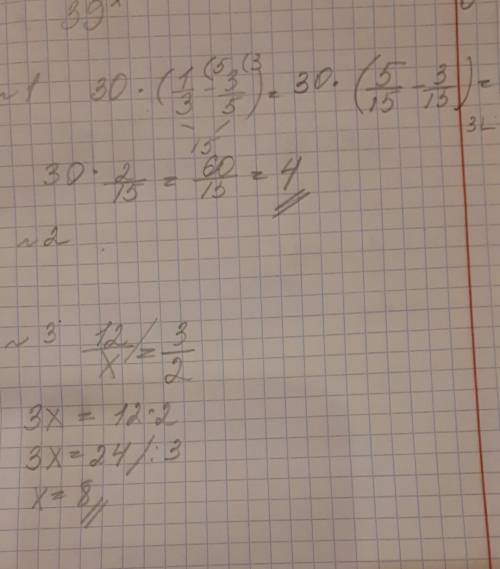 39
~1 30 · (1/3 (5 - 3/5 (3) = 30 · (5/15 - 3/15) =
15
30 · 2/15 = 60/15 = 4
~2
~3 12/x = 3/2
3x = 12·2
3x = 24 /:3
x = 8